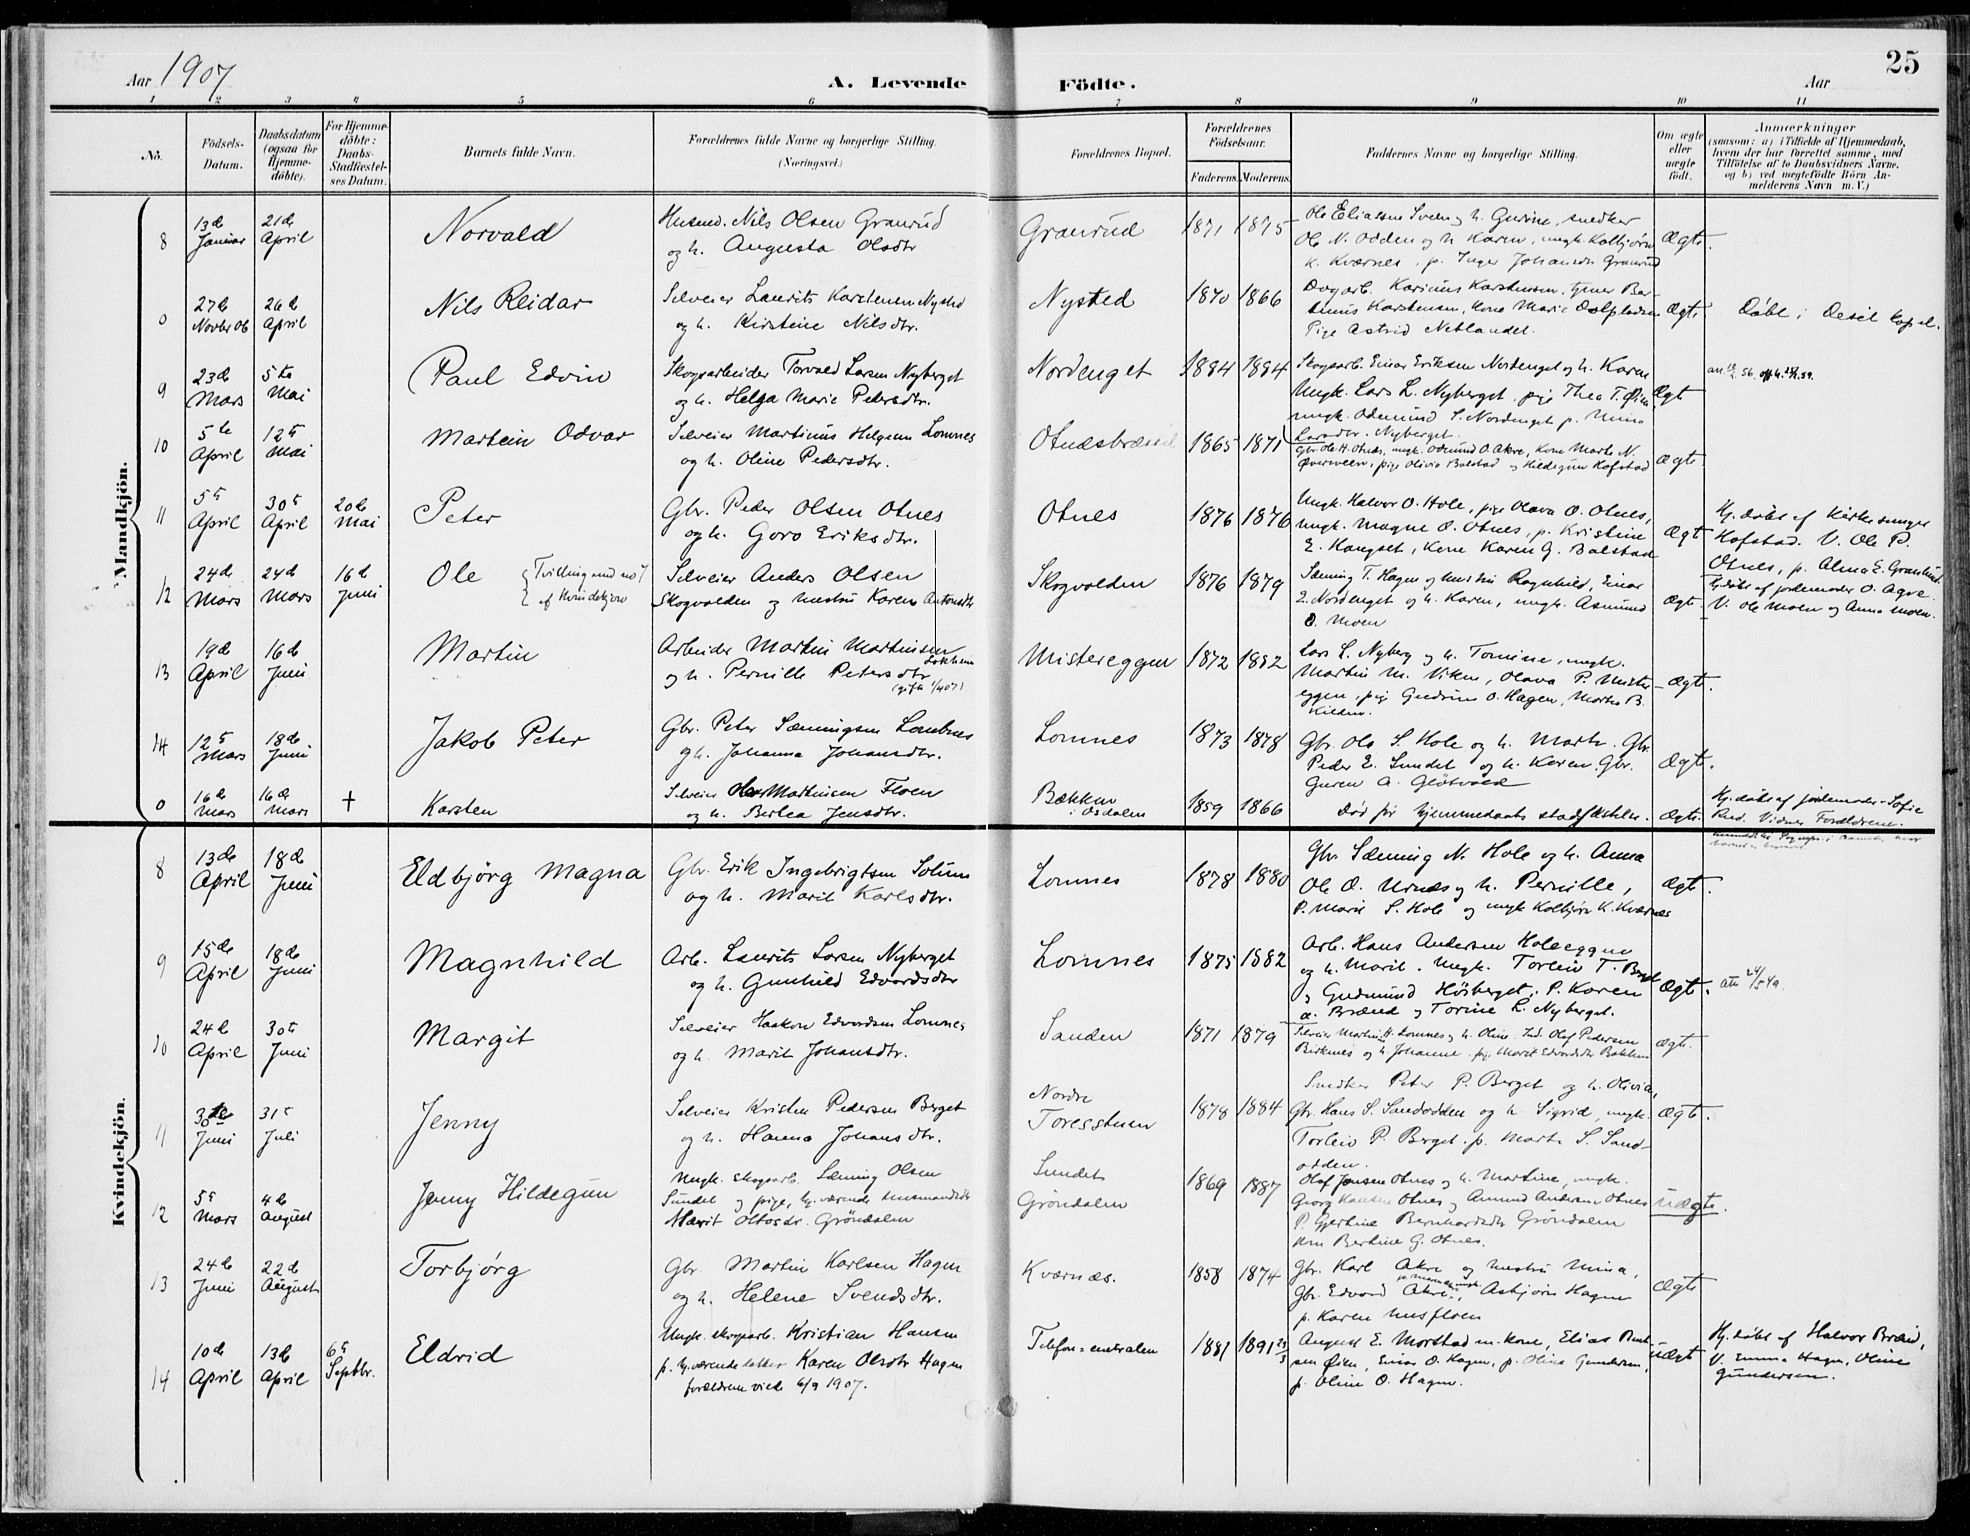 25
Aar 1907
A. Levende Födte.
Aar
1 2 3 4 5 6 7 8 9 10 11
Nö.
Födsels-Datum.
Daabsdatum (ogsaa for Hjemme-döbte).
For Hjemme-döbte: Daabs-Stadfæstel-ses Datum.
Barnets fulde Navn.
Forældrenes fulde Navne og borgerlige Stilling.
(Næringsvei.)
Forældrenes Bopæl.
Forældrenes Födselsaar.
Faderens. Moderens.
Faddernes Navne og borgerlige Stilling.
Om ægte eller uægte födt.
Anmærkninger
(saasom: a) i Tilfælde af Hjemmedaab,
hvem der har forrettet samme, med
Tilföielse af to Daabsvidners Navne,
og b) ved uægtefödte Börn An-
melderens Navn m. V.)
Mandkjön.
8 13de Januar 21de April Norvald
Husmd. Nils Olsen Granrud
og h. Augusta Olsdtr
Granrud 1871 1875
Ole N. Odden og h. Karen, ungk. Kolbjørn
K. Kværnes, p. Inger Johansdtr Granrud
Ægte.
0 27de Novbr 06 26de April Nils Reidar
Selveier Laurits Karstensen Nysted
og h. Kirstine Nilsdtr.
Nysted 1870 1866
Dagarb. Karinus Karstensen, tjener
Pige Astrid Netlandet.
Ægte
Döbt i
9 23de Mars 5te Mai Paul Edvin
Skogsarbeider Torvald Larsen Nyberget
og h. Helga Marie Petersdtr.
Nordenget 1884 1884
Skogsarb. Einar Eriksen Nordenget og h. Karen
Ungk. Lars L. Nyberget, pige Thea T. Øien
ungk. Odmund S. Nordenget p. Mina
Larsdtr. Nyberget.
Ægte
10 5te April 12te Mai Martein Odvar
Selveier Martinus Helgesen Lomnes
og h. Oline Pedersdtr.
1865 1871
Gbr. Ole H. Otnes, ungk. Odmund O. Akre, kone Marte N.
Øverveen, pige Olivia Bolstad og Hildegun Hofstad
Ægte
11 5te April 30te April 20de Mai Peter
Gbr. Peder Olsen Otnes
og h. Goro Eriksdtr.
Otnes 1876 1876
Ungk. Halvor O. Hole, pige Olava O. Otnes,
ungk. Magne O. Otnes, p. Kristine
E. Haugset, kone Karen G. Bolstad
Ægte
Hj. döbt af Kirkesanger
Hofstad. V. Ole P.
Otnes, p. Alma E. Granlund
12 24de Mars 24de Mars 16de Juni Ole { Tvilling med no 7 af Kvindekjøn
Selveier Anders Olsen
Skogvolden og hustru Karen Antonsdtr
Skogvolden 1876 1879
Sæming T. Hagen og hustru Ragnhild, Einar
E. Nordenget og h. Karen, ungk. Asmund
O. Moen
Ægte
Hj. döbt af jordemoder O. Agre.
V. Ole Moen og Anna Moen.
13 19de April 16de Juni Martin
Arbeider Martin Martinsen
og h. Pernille Petersdtr
Mistereggen 1872 1882
Lars L. Nyberg og h. Tomine, ungk.
Martin M. Viken, Olava P. Mister-
eggen, pige Gudrun O. Hagen, Marte B.
Kilden.
Ægte.
14 12te Mars 18de Juni Jakob Peter
Gbr. Peter Sæmingsen Lombnes
og h. Johanna Johansdtr.
Lomnes 1873 1878
Gbr. Ole S. Hole og h. Marte. Gbr.
Peder E. Sundet og h. Karen. Gbr.
Guren A. Gløtvold
Ægte.
0 16de Mars 16de Mars † Karsten
Selveier Martinsen Floen
og h. Bertea Jensdtr.
Bækken i Øsdalen 1859 1866
Död før hjemmedaabs stadfæstelse.
Ægte.
Hj. döbt af jordemoder Sofie
Rud. Vidner Forældrene.
Kvindekjön.
8 13de April 18de Juni Eldbjörg Magna
Gbr. Erik Ingebrigtsen Solum
og h. Marit Karlsdtr.
Lomnes 1878 1880
Gbr. Sæming N. Hole og h. Anna
Ole O. Urnes og h. Pernille,
P. Marie S. Hole og ungk Kolbjørn K. Kværnes
Ægte.
9 15de April 18de Juni Magnhild
Arb. Laurits Larsen Nyberget
og h. Gunhild Edvardsdtr
Lomnes 1875 1882
Arb. Hans Andersen Holeeggen
og h. Marit. Ungk. Torleiv T. Berget
og Gudmund Höiberget. P. Karen
A. Brænd og Torine L. Nyberget.
Ægte.
att 24/5 49.
10 24de April 30te Juni Margit
Selveier Haakon Edvardsen Lomnes
og h. Marit Johansdtr.
Sanden 1871 1879
Selveier Martin H. Lomnes og h. Oline. Ind. Olof Pedersen
Birknes og h. Johanne. pige Marit Edvardsdtr Bakken
Ægte.
11 30te Juni 31te Juli Jenny
Selveier Kristen Pedersen Berget
og h. Hanna Johansdtr.
Nordre
Toresstuen 1878 1884
Snedker Peter P. Berget og h. Olivia,
Gbr. Hans S. Sandodden og h. Sigrid, ungk.
Torleiv P. Berget. p. Marte S. Sand-
odden.
Ægte.
12 5te Mars 4de August Jenny Hildegun
Ungk. skogsarb. Sæming Olsen
Sundet og pige, hj. værende husmandsdtr
Marit Ottosdtr. Gröndalen
Sundet
Gröndalen 1869 1887
Olof Jonsen Otnes og h. Martine, ungk.
Georg Hansen Otnes og Amund Andersen Otnes
P. Gjertine Bernhardsdtr Gröndalen
Bertine G. Otnes.
Uægte.
13 24de Juni 22de August Torbjørg
Gbr. Martin Karlsen Hagen
og h. Helene Svendsdtr.
Kværnæs. 1858 1874
Gbr. Karl Akre og hustru Mina,
Gbr. Edvard Akre, Asbjörn Hagen
p. Karen Husfloen
Ægte
14 10de April 13de April 6te Septbr. Eldrid
Ungk. skogsarb. Kristian Hansen
p. hj. værende datter Karen Olsdtr Hagen
forældrene viede 6/9 1907.
Telefoncentralen 1881 1891 23/3
August E. Morstad m. kone, Elias Bent-
sen Øien, Einar O. Hagen, p. Olina Gundersen,
p. Oline O. Hagen.
Uægte
Hj. döbt af Halvor Bræin,
V. Emma Hagen, Oline
Gundersen.